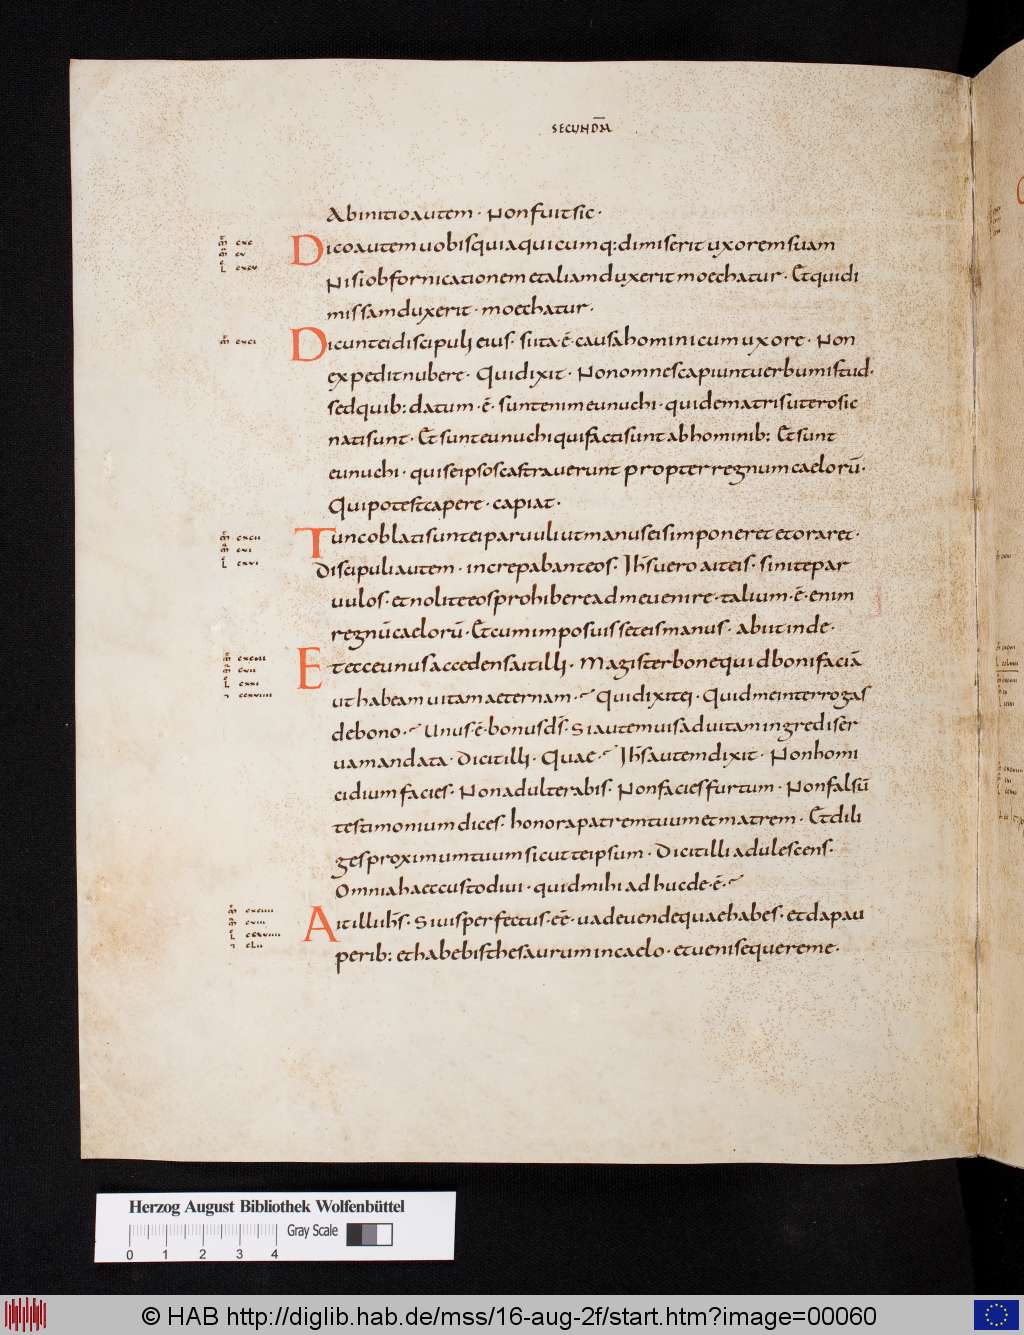 SECUNDM̄
Ab initio autem · Non fuit sic ·
m̄ cxc
m̄ cv
l̄ cxcv
Dico autem uobis quia quicumq: dimiserit uxorem suam
Nisi ob fornicationem et aliam duxerit moechatur · Et qui di
missam duxerit · moechatur ·
m̄ cxci
Dicunt ei discipuli eius · si ita · ē · causa homini cum uxore · Non
expedit nubere · Qui dixit · Non omnes capiunt uerbum istud ·
sed quib: datum · ē · sunt enim eunuchi · qui de matris utero sic
nati sunt · Et sunt eunuchi qui facti sunt ab hominib: Et sunt
eunuchi · qui se ipsos castrauerunt propter regnum caelorū ·
Qui potest capere · capiat ·
m̄ cxcii
m̄ cvi
l̄ cxvi
Tunc oblati sunt ei paruuli ut manus eis imponeret et oraret ·
Discipuli autem · increpabant eos · Ih̄s uero ait eis · sinite par
uulos · et nolite eos prohibere ad me uenire · talium · ē · enim
regnū caelorū · Et cum imposuisset eis manus · abiit inde ·
m̄ cxciii
m̄ cvii
l̄ cxxi
ꝛ ccxviiii
Et ecce unus accedens ait illi · Magister bone quid boni faciā
ut habeam uitam aeternam · Qui dixit ei · Quid me interrogas
de bono · Unus · ē · bonus d̄s · Si autem uis ad uitam ingredi ser
ua mandata · Dicit illi · Quae · Ih̄s autem dixit · Non homi
cidium facies · Non adulterabis · Non facies furtum · Non falsū
testimonium dices · honora patrem tuum et matrem · Et dili
ges proximum tuum sicut te ipsum · Dicit illi adulescens ·
Omnia haec custodiui · quid mihi adhuc de · ē ·
m̄ cxciiii
m̄ cxiii
l̄ ccxviiii
ꝛ clii
Ait illi ih̄s · Si uis perfectus · eē · uade uende quae habes · et da pau
perib: et habebis thesaurum in caelo · et ueni sequere me ·
Herzog August Bibliothek Wolfenbüttel
Gray Scale
0 1 2 3 4
© HAB http://diglib.hab.de/mss/16-aug-2f/start.htm?image=00060